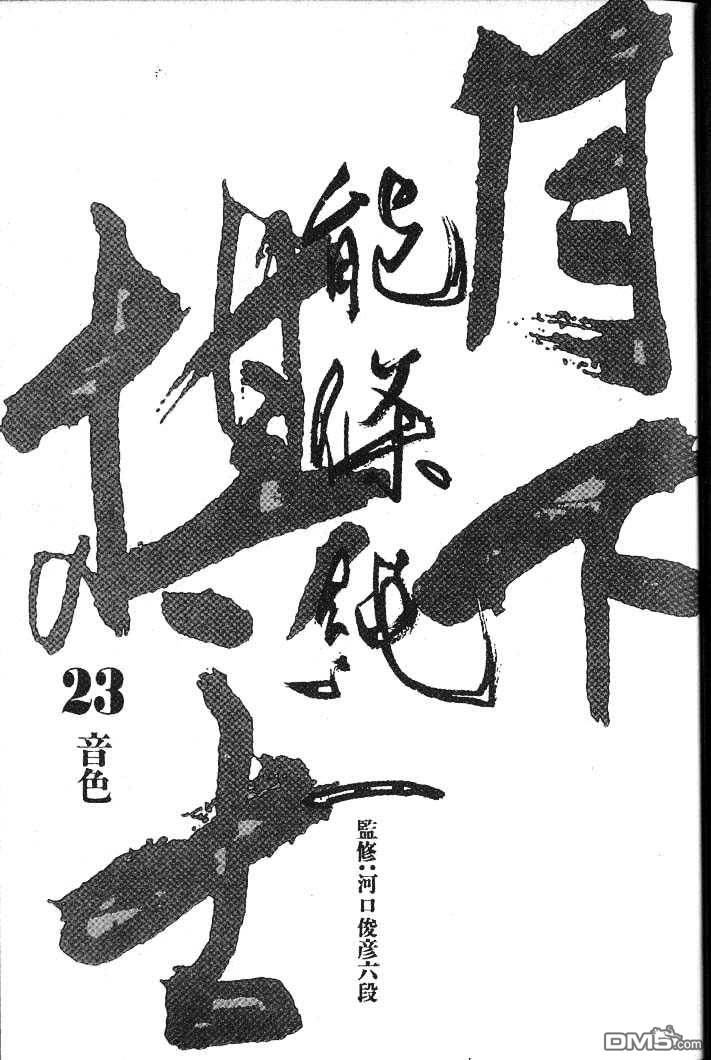 月下棋士
能條純一
23
音色
監修:河口俊彦六段
DM5.com